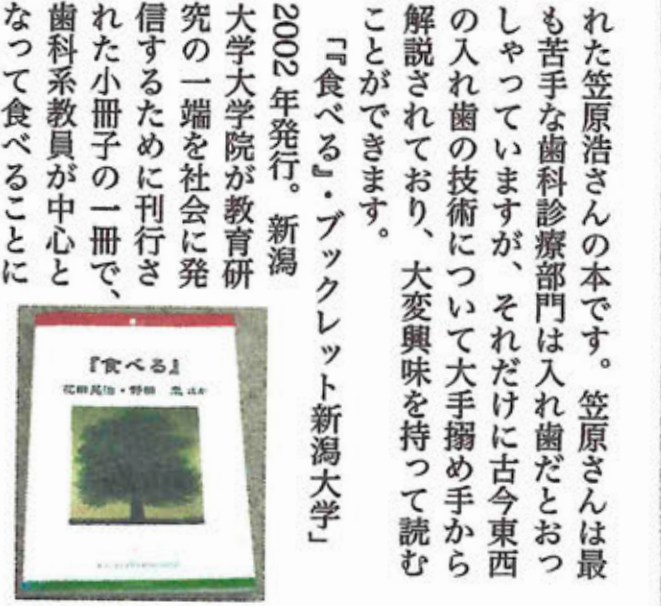 れた笠原浩さんの本です。笠原さんは最
も苦手な歯科診療部門は入れ歯だとおっ
しゃっていますが、それだけに古今東西
の入れ歯の技術について大手搦め手から
解説されており、大変興味を持って読む
ことができます。
「『食べる』・ブックレット新潟大学」
2002年発行。新潟
大学大学院が教育研
究の一端を社会に発
信するために刊行さ
れた小冊子の一冊で、
歯科系教員が中心と
なって食べることに
『食べる』